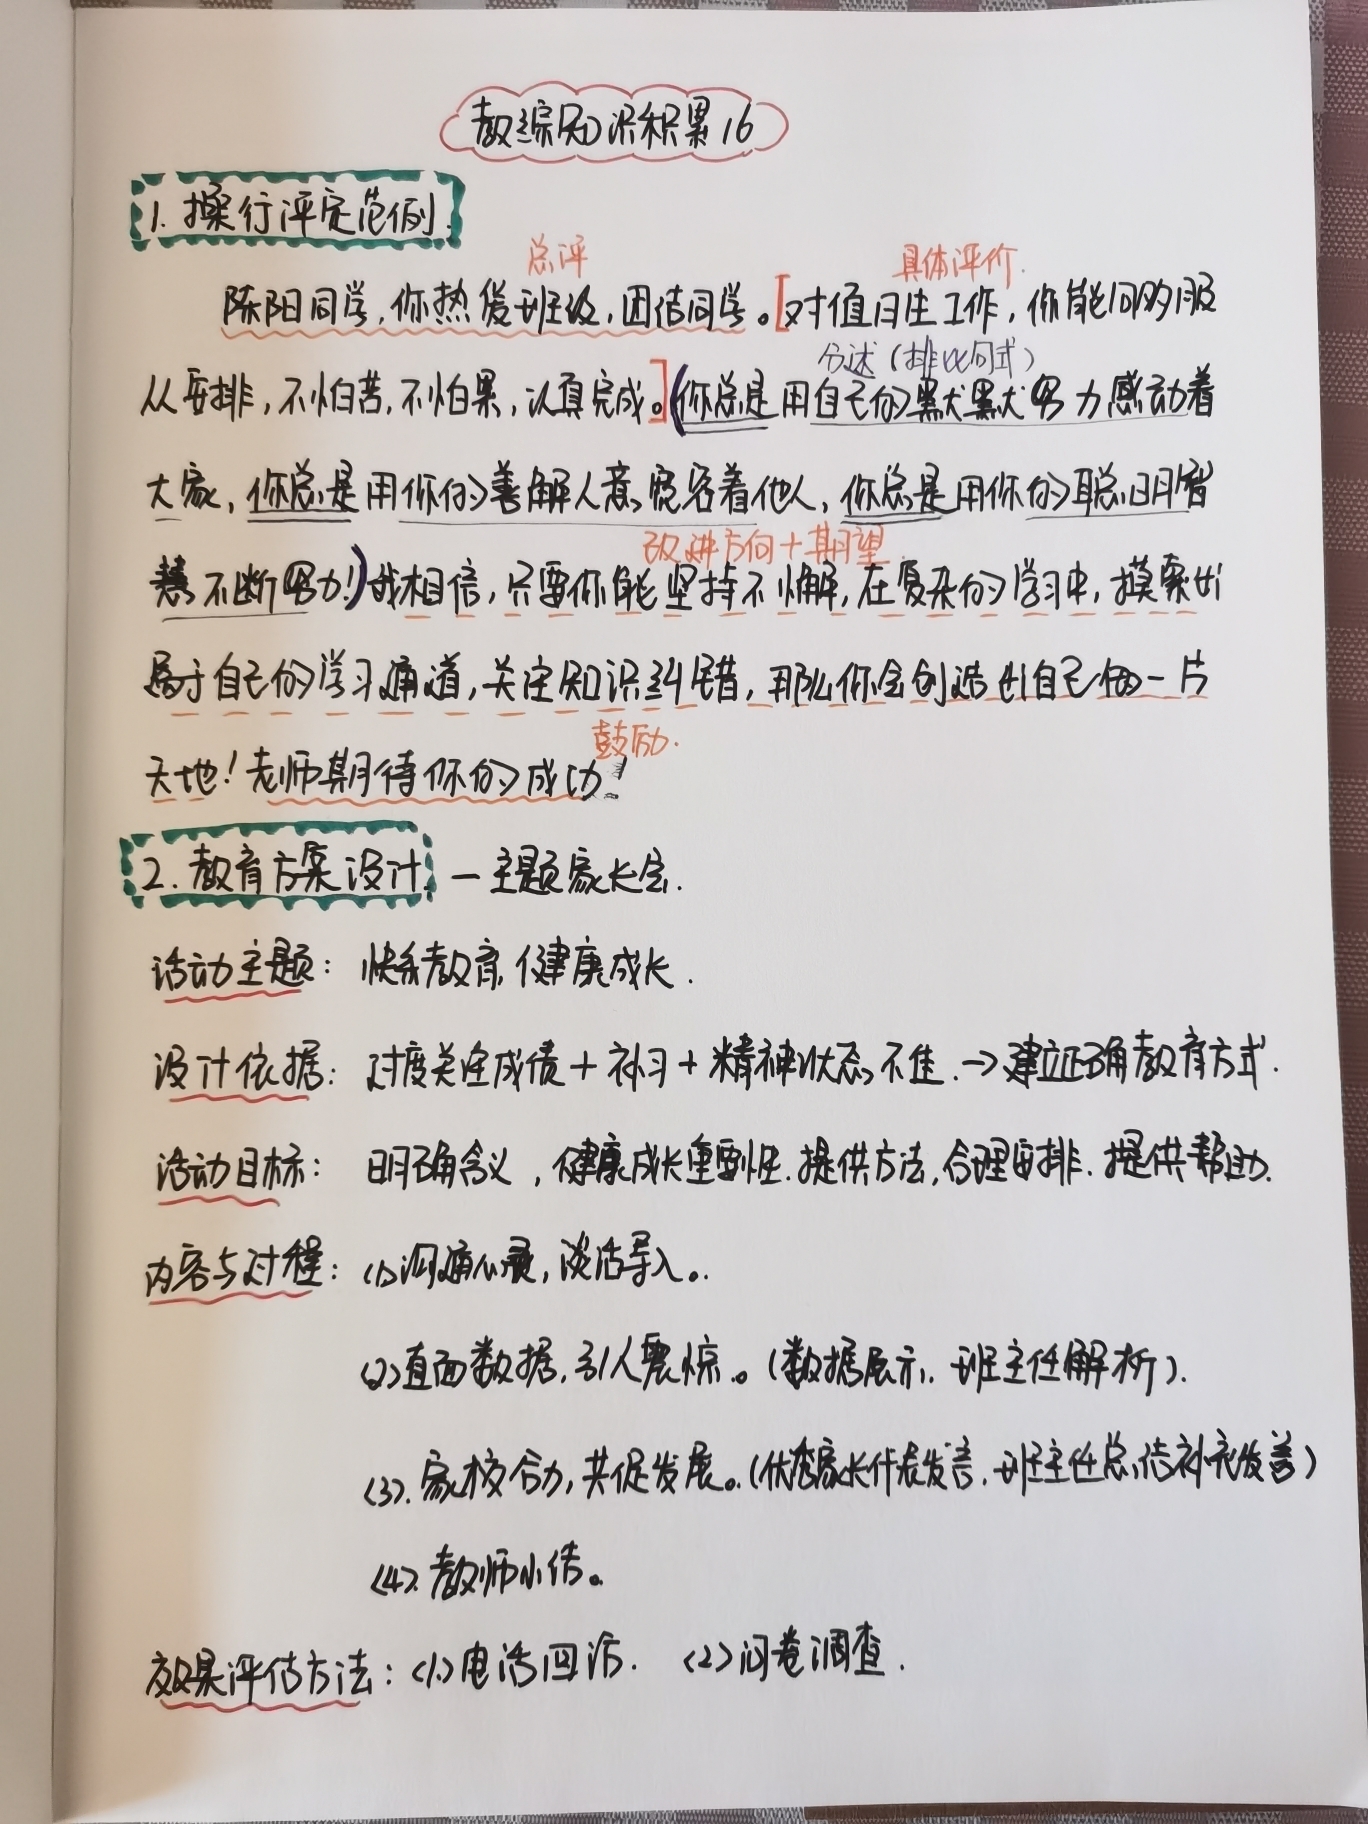 教综知识积累16
1. 操行评定范例
总评 具体评价.
陈阳同学,你热爱班级,团结同学。[对值日生工作,你能同够服
分述(排比句式)
从安排,不怕苦,不怕累,认真完成。](你总是用自己的默默努力感动着
大家,你总是用你的善解人意宽容着他人,你总是用你的聪明智
改进方向+期望
慧不断努力!)我相信,只要你能坚持不懈,在复杂的学习中,摸索出
属于自己的学习通道,关注知识纠错,那么你会创造出自己的一片
鼓励.
天地!老师期待你的成功!
2. 教育方案设计 — 主题家长会.
活动主题: 快乐教育,健康成长.
设计依据: 过度关注成绩+补习+精神状态不佳.→建立正确教育方式.
活动目标: 明确含义,健康成长重要性.提供方法,合理安排.提供帮助.
内容与过程: (1)沟通心灵,谈话导入。
(2)直面数据,引人震惊。(数据展示.班主任解析).
(3).家校合力,共促发展。(优秀家长代表发言.班主任总结补充发言)
(4).教师小结。
效果评估方法: (1)电话回访. (2)问卷调查.